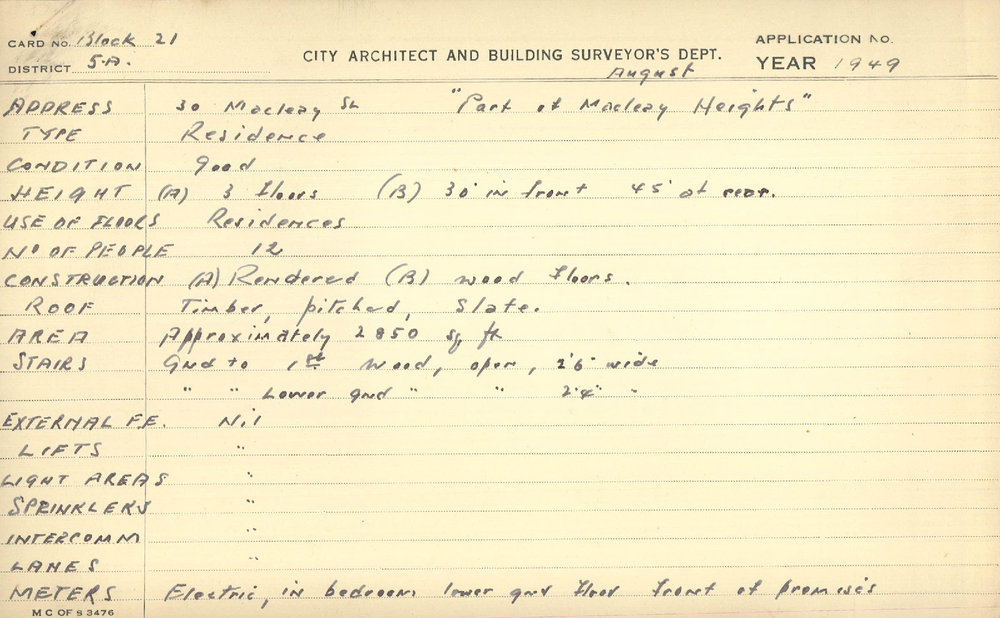 CARD No. Block 21
DISTRICT 5.A.
CITY ARCHITECT AND BUILDING SURVEYOR'S DEPT.
APPLICATION No.
August
YEAR 1949
ADDRESS 30 Macleay St "Part of Macleay Heights"
TYPE Residence
CONDITION Good
HEIGHT (A) 3 floors (B) 30' in front 45' at rear.
USE OF FLOORS Residences
No OF PEOPLE 12
CONSTRUCTION (A) Rendered (B) wood floors.
ROOF Timber, pitched, Slate.
AREA Approximately 2850 sq ft
STAIRS Gnd to 1st wood, open, 2'6" wide
" " Lower gnd " " 2'4" "
EXTERNAL F.E. Nil
LIFTS "
LIGHT AREAS "
SPRINKLERS "
INTERCOMM "
LANES "
METERS Electric, in bedroom lower gnd floor front of premises
M C OF S 3476